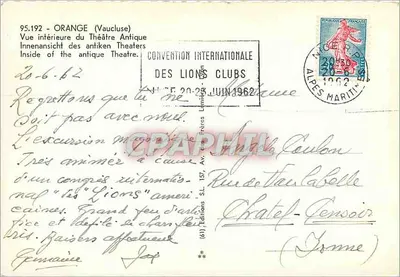 95.192 - ORANGE (Vaucluse)
Vue intérieure du Théâtre Antique
Innenansicht des antiken Theaters
Inside of the antique Theatre.
CONVENTION INTERNATIONALE
DES LIONS CLUBS
NICE 20-23 JUIN 1962
NICE R.P.
20-6
1962
ALPES MARITIMES
20-6-62
Regrettons que tu ne
soit pas avec nous.
L'excursion
Très animée à cause
d'un congrès internatio-
nal "les "Lions" améri-
caines. Grand feu d'arti-
fice et défilé
Baisers affectueux
Germaine
Madame
Angèle Coulon
Rue de Vaulabelle
Chatel-Censoir
(Yonne)
CPAPHIL